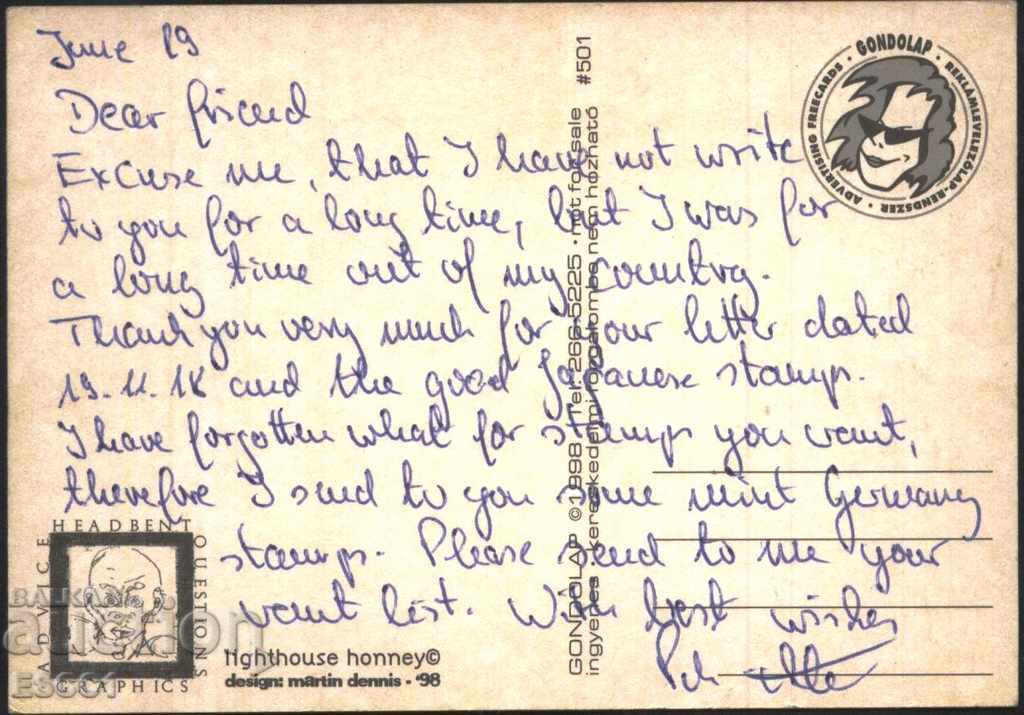 June 19
Dear friend
Excuse me, that I have not write
to you for a long time, but I was for
a long time out of my country.
Thank you very much for your letter dated
19.11.18 and the good Japanese stamps.
I have forgotten what for stamps you want,
therefore I send to you some mint Germany
stamps. Please send to me your
want list. With best wishes
GONDOLAP ©1998 Tel: 266-5225 · not for sale #501
ingyenes · kereskedelmi forgalomba nem hozható
GONDOLAP · REKLÁMLEVELEZŐLAP-RENDSZER · ADVERTISING FREECARDS ·
HEADBENT
QUESTIONS
ADVICE
GRAPHICS
lighthouse honney©
design: martin dennis - '98
BALKAN
auction